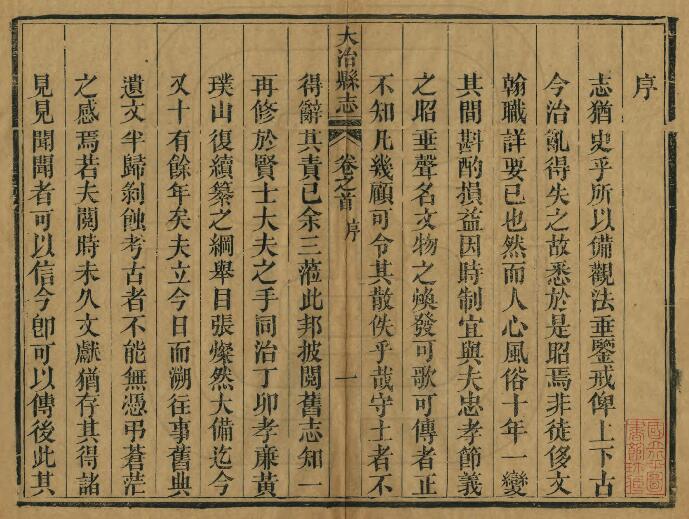 序
志猶史乎所以備觀法垂鑒戒俾上下古
今治亂得失之故悉於是昭焉非徒侈文
翰職詳要已也然而人心風俗十年一變
其間斟酌損益因時制宜與夫忠孝節義
之昭垂聲名文物之煥發可歌可傳者正
不知凡幾顧可令其散佚乎哉守土者不
大冶縣志
卷之首 序
一
得辭其責已余三蒞此邦披閱舊志知一
再修於賢士大夫之手同治丁卯孝廉黃
璞山復續纂之綱舉目張燦然大備迄今
又十有餘年矣夫立今日而溯往事舊典
遺文半歸剝蝕考古者不能無憑弔蒼茫
之感焉若夫閱時未久文獻猶存其得諸
見見聞聞者可以信今卽可以傳後此其